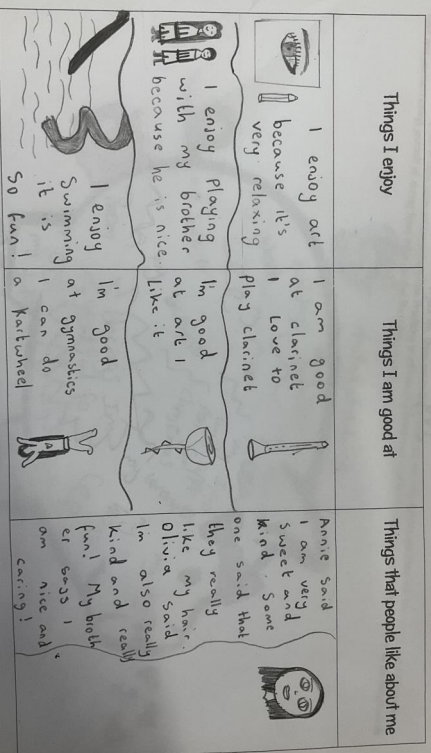 Things I enjoy
I enjoy art
because it's
very relaxing
I enjoy playing
with my brother
because he is nice.
I enjoy
Swimming
it is
So fun!
Things I am good at
I am good
at clarinet
I Love to
play clarinet
I'm good
at art I
Like it
I'm good
at gymnastics
I can do
a kartwheel
Things that people like about me
Annie said
I am very
sweet and
kind. Some
one said that
they really
like my hair.
Olivia said
Im also really
kind and really
fun! My broth
er says I
am nice and
caring!